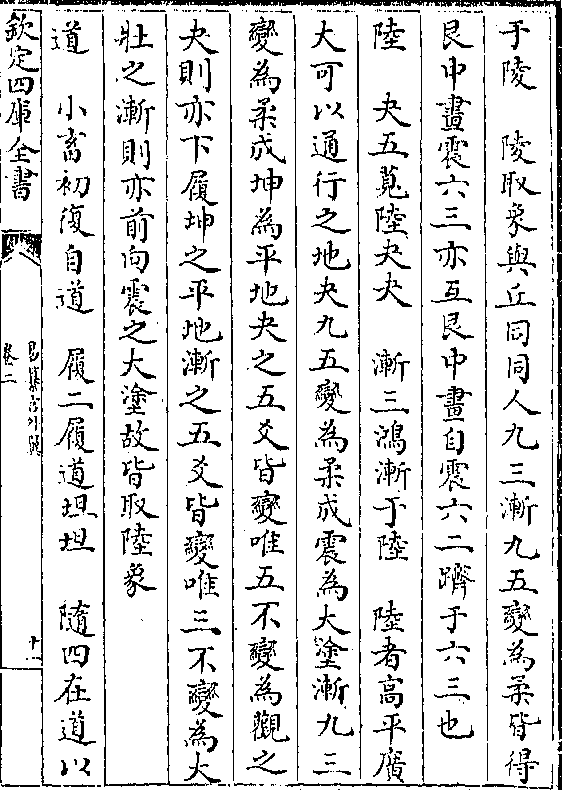 于陵　陵取象與丘同同人九三漸九五變為柔皆得
艮中畫震六三亦互艮中畫自震六二躋于六三也
陸　夬五莧陸夬夬　漸三鴻漸于陸　陸者高平廣
大可以通行之地夬九五變為柔成震為大塗漸九三
變為柔成坤為平地夬之五爻皆變唯五不變為觀之
夬則亦下履坤之平地漸之五爻皆變唯三不變為大
壯之漸則亦前向震之大塗故皆取陸象
道　小畜初復自道　履二履道坦坦　隨四在道以
欽定四庫全書
易纂言外翼
卷二
十一